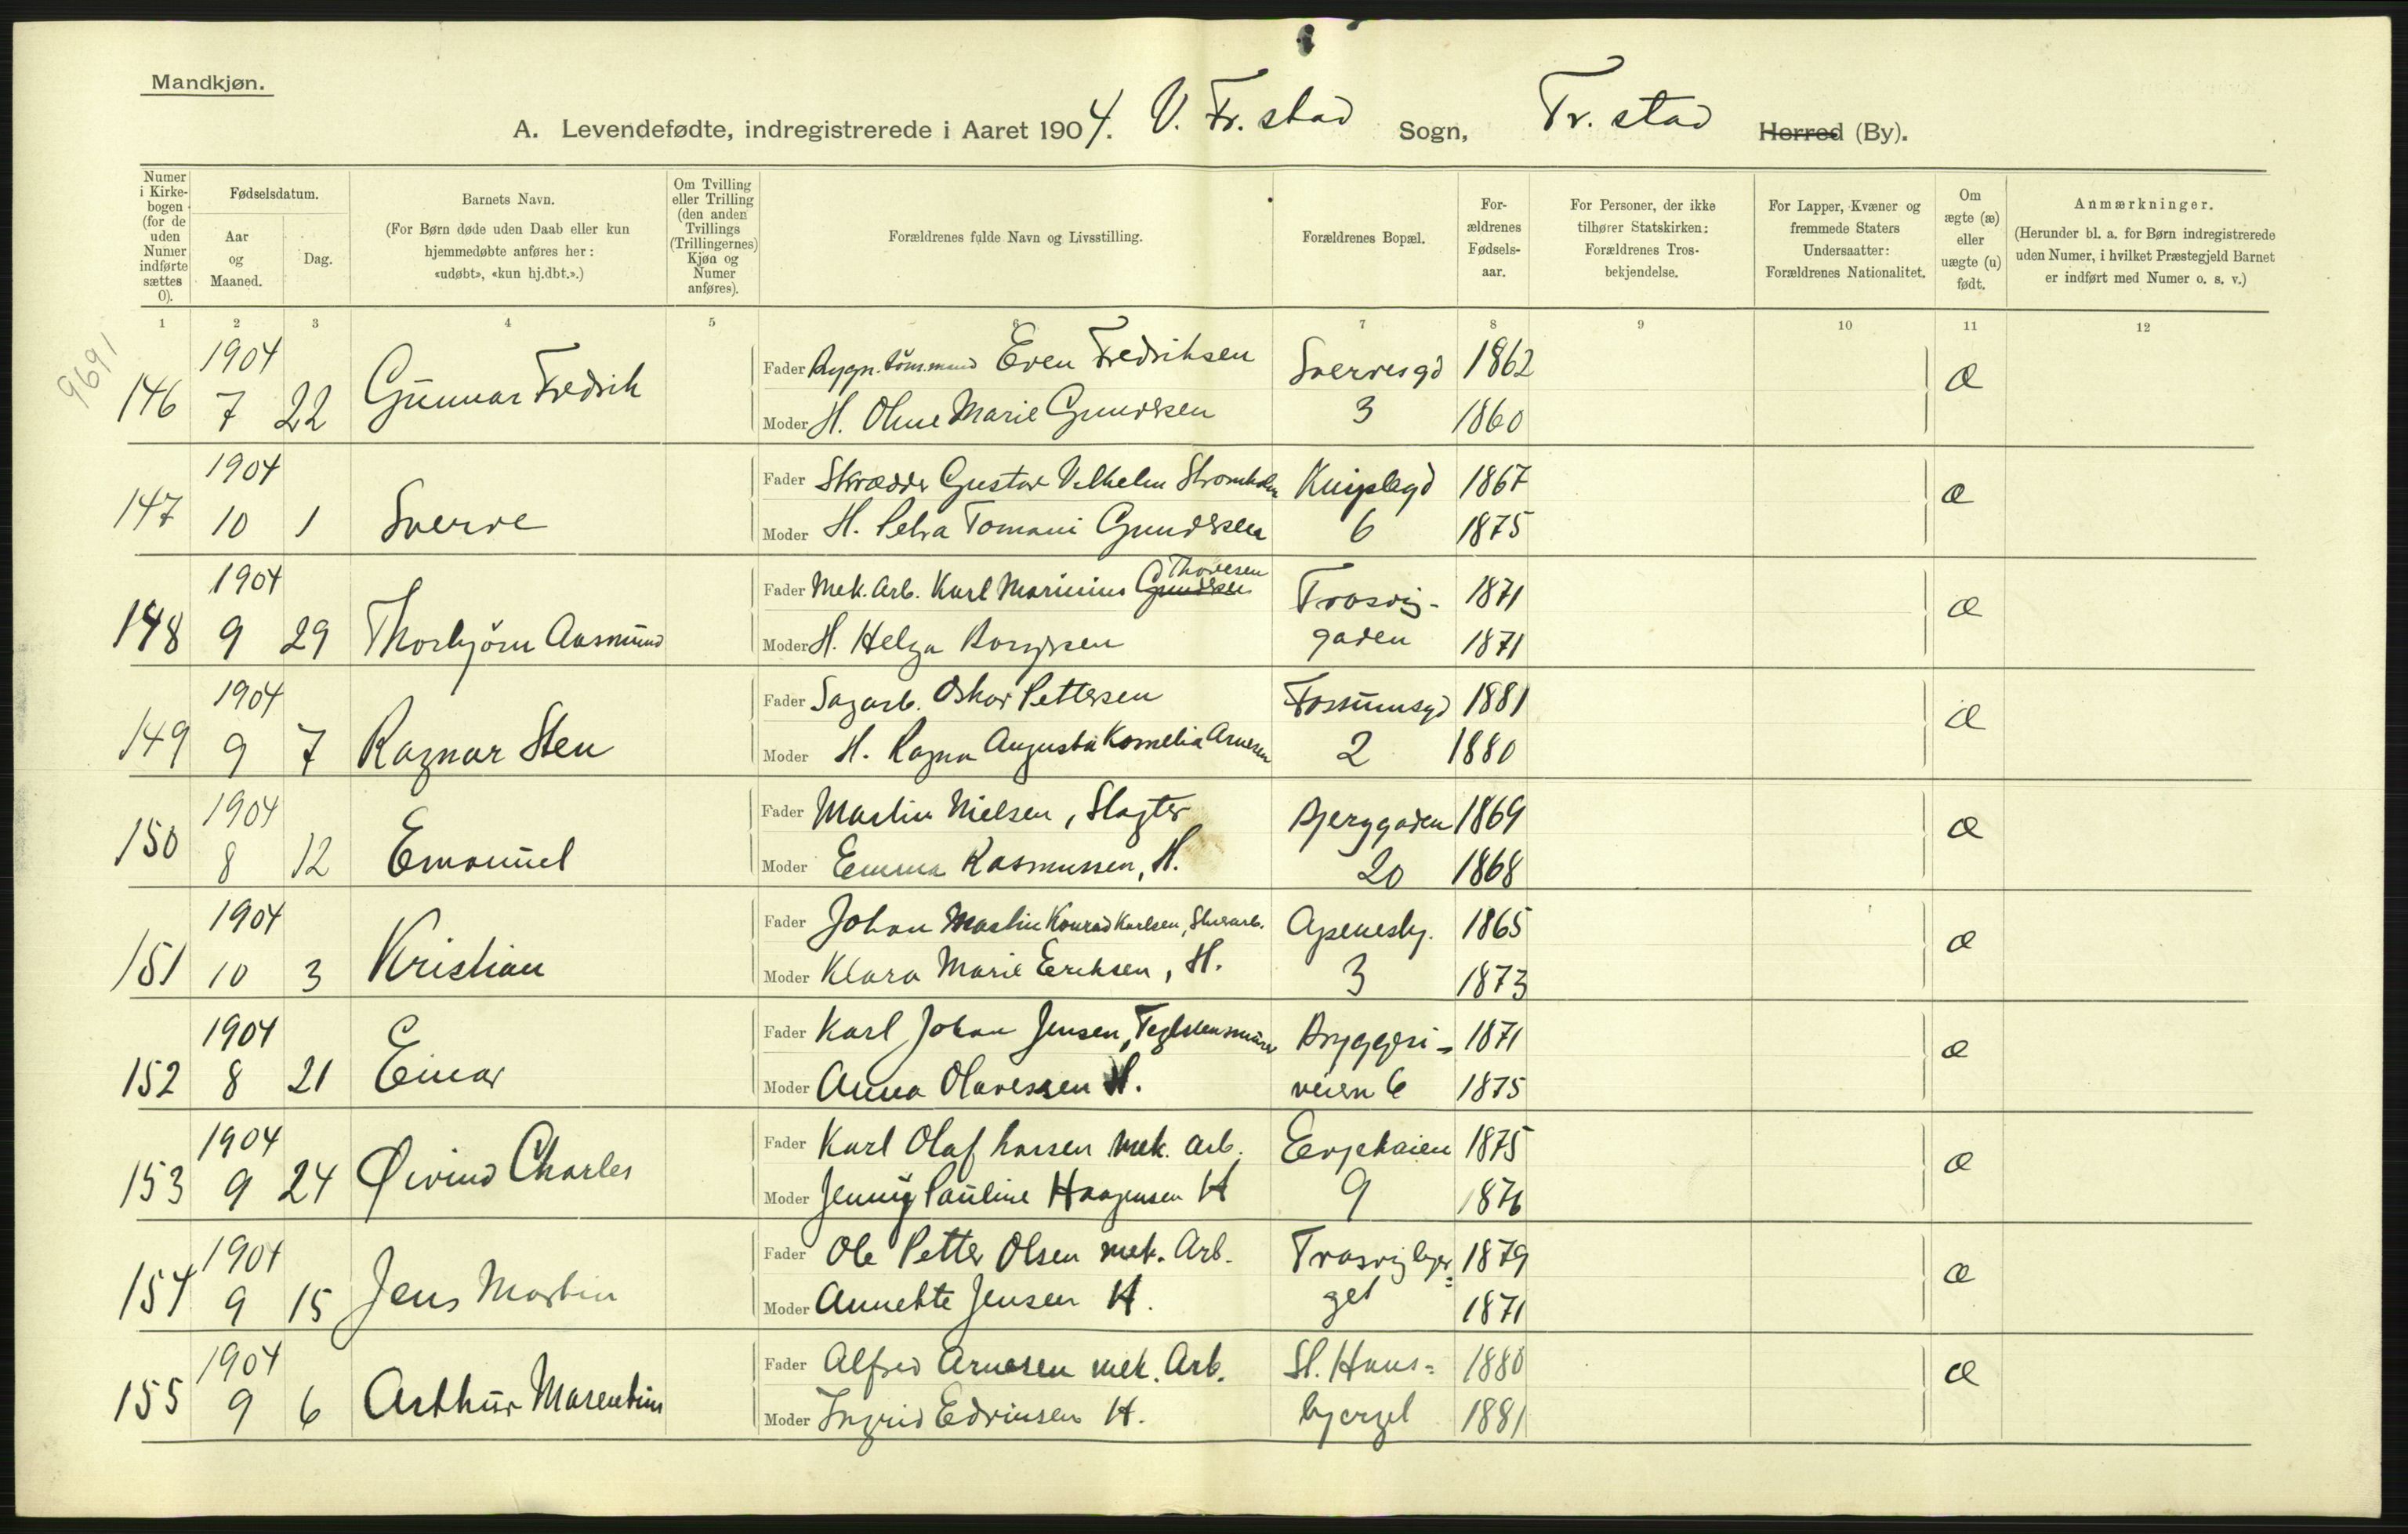 Mandkjøn.
A. Levendefødte, indregistrerede i Aaret 1904. V. Fr.stad Sogn, Fr.stad Herred (By).
Numer i Kirkebogen (for de uden Numer indførte sættes 0).
Fødselsdatum.
Aar og Maaned.
Dag.
Barnets Navn.
(For Børn døde uden Daab eller kun hjemmedøbte anføres her: «udøbt», «kun hj.dbt.».)
Om Tvilling eller Trilling (den anden Tvillings (Trillingernes) Kjøn og Numer anføres).
Forældrenes fulde Navn og Livsstilling.
Forældrenes Bopæl.
Forældrenes Fødselsaar.
For Personer, der ikke tilhører Statskirken: Forældrenes Trosbekjendelse.
For Lapper, Kvæner og fremmede Staters Undersaatter: Forældrenes Nationalitet.
Om ægte (æ) eller uægte (u) født.
Anmærkninger.
(Herunder bl. a. for Børn indregistrerede uden Numer, i hvilket Præstegjeld Barnet er indført med Numer o. s. v.)
1 2 3 4 5 6 7 8 9 10 11 12
9691
1904
146 7 22 Gunnar Fredrik
Fader Bygn.tømmend Even Fredriksen Sverresgd 1862 æ
Moder H. Oline Marie Gundersen 3 1860
1904
147 10 1 Sverre
Fader Skrædder Gustav Vilhelm Stromholm 1867 æ
Moder H. Petra Tomani Gundersen 6 1875
1904
148 9 29 Thorbjørn Aasmund
Fader Mek. Arb. Karl Marinius Gundersen Thoresen Trosvig- 1871 æ
Moder H. Helga Borgersen gaden 1871
1904
149 9 7 Ragnar Sten
Fader Sagarb. Oskar Pettersen Fossumsgd 1881 æ
Moder H. Ragna Augusta Kornelia Arnesen 2 1880
1904
150 8 12 Emanuel
Fader Martin Nielsen, Slagter Bjerggaden 1869 æ
Moder Emma Rasmussen, H. 20 1868
1904
151 10 3 Kristian
Fader Johan Martin Konrad Karlsen, Apenesbg. 1865 æ
Moder Klara Marie Eriksen, H. 3 1873
1904
152 8 21 Einar
Fader Karl Johan Jensen, Teglstensmurer Bryggeri- 1871 æ
Moder Anna Olavessen H. veien 6 1875
1904
153 9 24 Øivind Charles
Fader Karl Olaf Larsen mek. arb. 1875 æ
Moder Jenny Pauline Haagensen H 9 1876
1904
154 9 15 Jens Martin
Fader Ole Petter Olsen mek. Arb. Trosvigbjer= 1879 æ
Moder Annette Jensen H. get 1871
1904
155 9 6 Arthur Marentius
Fader Alfred Arnesen mek. Arb. St. Hans= 1880 æ
Moder Ingrid Edvinsen H. bjerget 1881